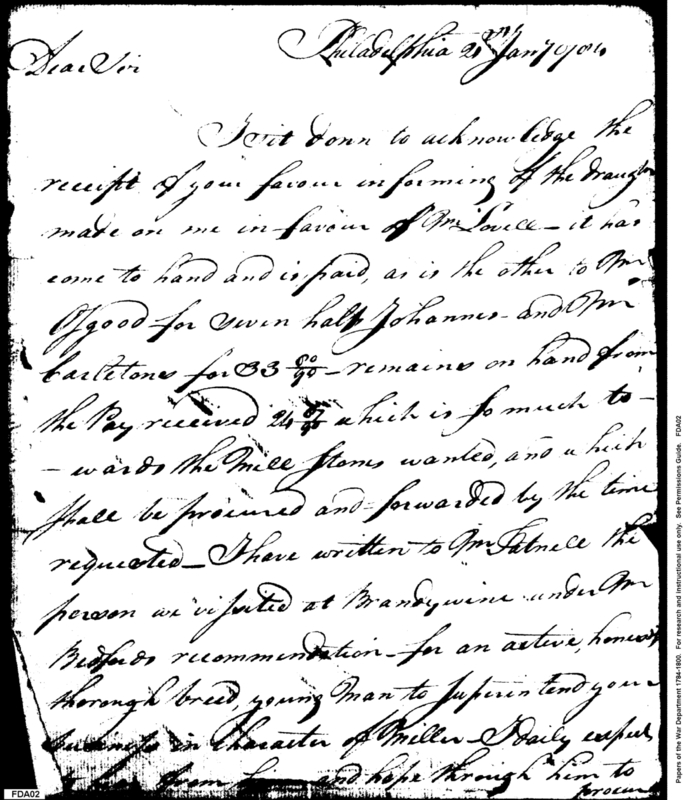 Philadelphia 24 Jany 1784
Dear Sir
I sit down to acknowledge the
receipt of your favour informing of the draught
made on me in favour of Mr Lovell – it has
come to hand and is paid, as is the other to Mr
Osgood for seven half Johannes – and Mr
Carletons for 33 80/90 – remains on hand from
the Pay received 24 /90 which is so much to-
-wards the Mill Stones wanted, and which
shall be procured and forwarded by the time
requested – I have written to Mr Tatnell the
person we visited at Brandywine under Mr
Bedfords recommendation – for an active, honest
thorough breed, young Man to Superintend your
business in Character of Miller – I daily expect
from and hope through him to
procure
FDA02
Papers of the War Department 1784-1800. For research and instructional use only. See Permissions Guide. FDA02